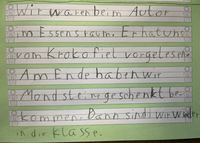 Wir waren beim Autor
im Essensraum. Er hat uns
vom Krokofiel vorgelesen
Am Ende haben wir
Mondsteine geschenkt be-
kommen. Dann sind wir wieder
in die Klasse.